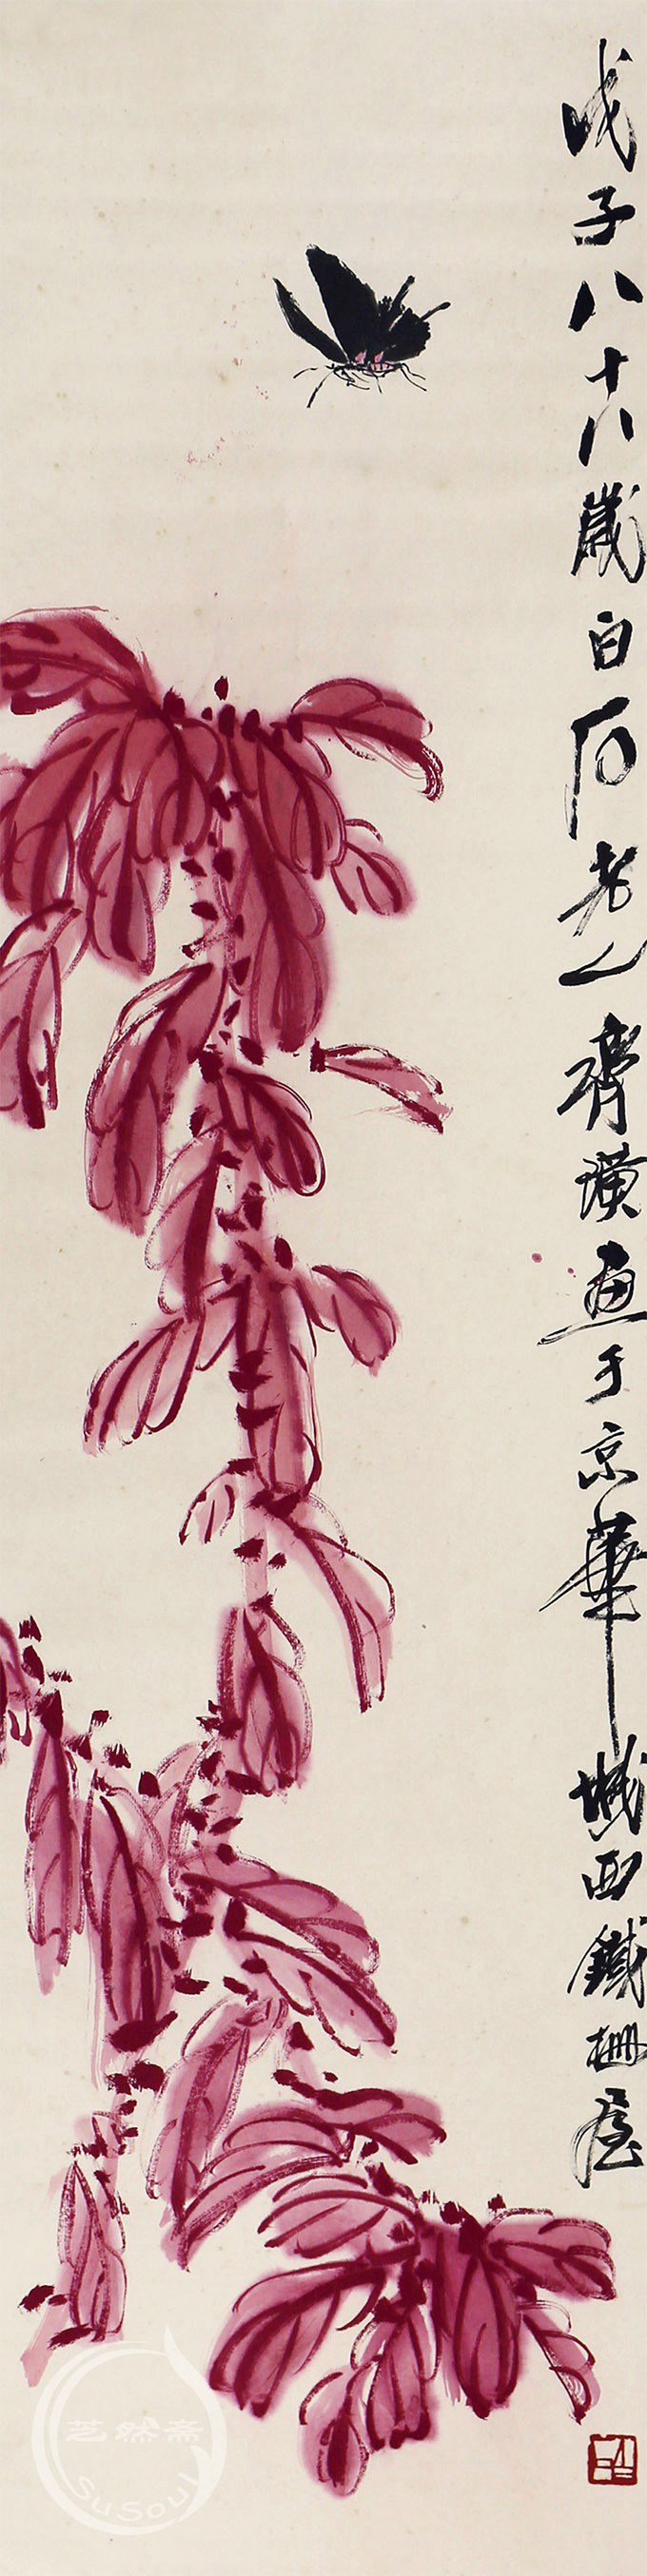 戊子八十八歲白石老人齊璜畫于京華城西鐵柵屋
芝然斋
SuSoul